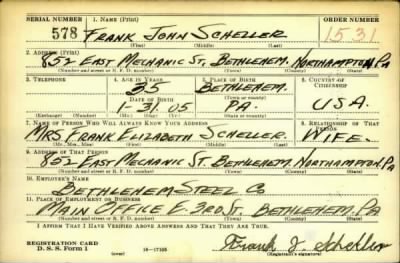 SERIAL NUMBER 1. NAME (Print) ORDER NUMBER
578 FRANK JOHN SCHELLER 1531
(First) (Middle) (Last)
2. ADDRESS (Print)
852 EAST MECHANIC ST. BETHLEHEM. NORTHAMPTON. PA
(Number and street or R. F. D. number) (Town) (County) (State)
3. TELEPHONE 4. AGE IN YEARS 5. PLACE OF BIRTH 6. COUNTRY OF CITIZENSHIP
35 BETHLEHEM.
DATE OF BIRTH (Town or county)
1-31-05 PA. U.S.A.
(Exchange) (Number) (Mo.) (Day) (Yr.) (State or country)
7. NAME OF PERSON WHO WILL ALWAYS KNOW YOUR ADDRESS 8. RELATIONSHIP OF THAT PERSON
MRS. FRANK ELIZABETH SCHELLER. WIFE.
(Mr., Mrs., Miss) (First) (Middle) (Last)
9. ADDRESS OF THAT PERSON
852 EAST MECHANIC ST. BETHLEHEM. NORTHAMPTON. PA
(Number and street or R. F. D. number) (Town) (County) (State)
10. EMPLOYER'S NAME
BETHLEHEM STEEL CO
11. PLACE OF EMPLOYMENT OR BUSINESS
MAIN OFFICE E. 3RD ST. BETHLEHEM. PA
(Number and street or R. F. D. number) (Town) (County) (State)
I AFFIRM THAT I HAVE VERIFIED ABOVE ANSWERS AND THAT THEY ARE TRUE.
REGISTRATION CARD
D. S. S. Form 1 (over) 16-17105 Frank J. Scheller
(Registrant's signature)